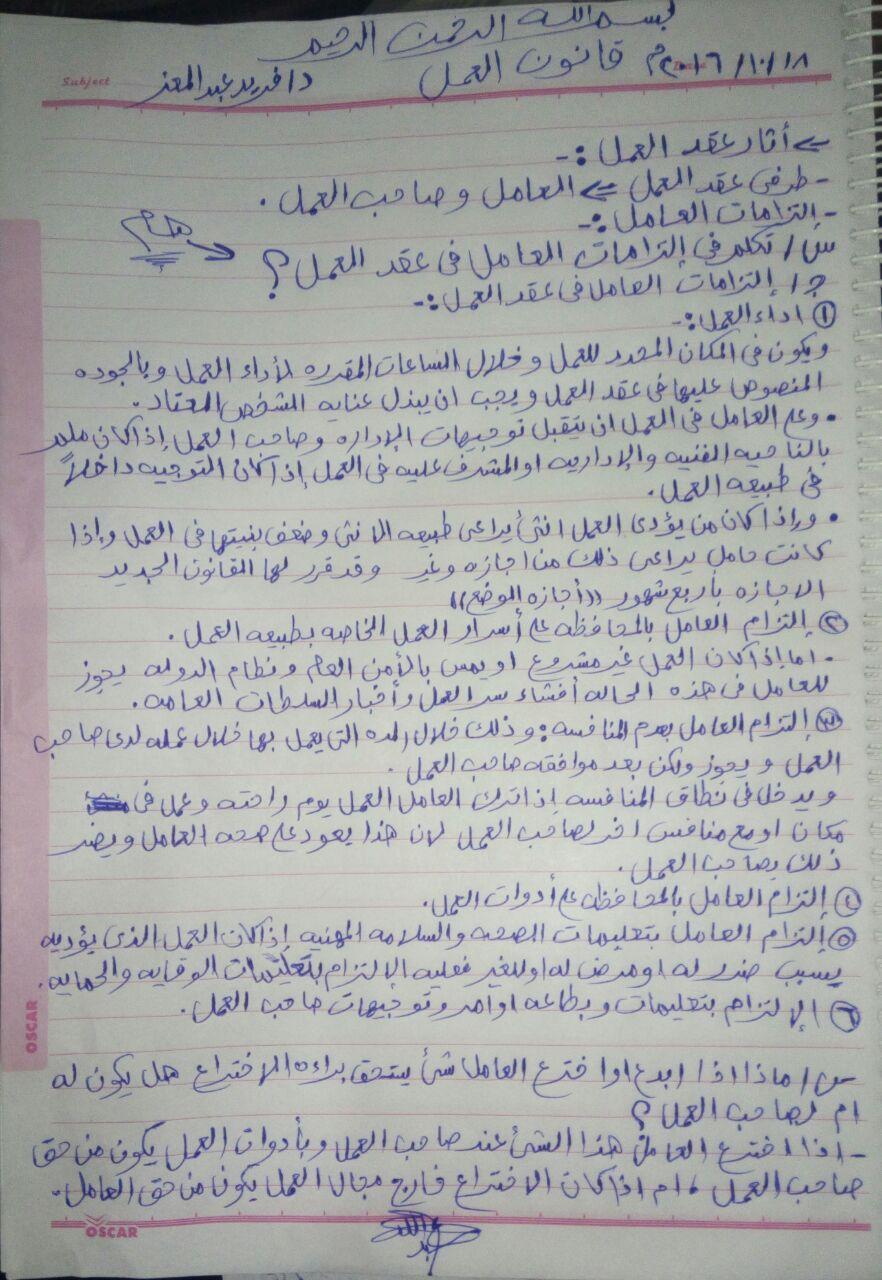 بسم الله الرحمن الرحيم
Subject
١٨/١٠/٢٠١٦م قانون العمل د/فريد عبد المعز
<= أثار عقد العمل :-
- طرفى عقد العمل <= العامل وصاحب العمل .
- إلتزامات العامل :-
س/ تكلم في إلتزامات العامل فى عقد العمل ؟ هام
ج/ إلتزامات العامل فى عقد العمل :-
① اداء العمل :-
ويكون فى المكان المحدد للعمل وخلال الساعات المقدره لأداء العمل وبالجوده
المنصوص عليها فى عقد العمل ويجب ان يبذل عنايه الشخص المعتاد .
• وعلى العامل فى العمل ان يتقبل توجيهات الإداره وصاحب العمل إذا كان ملم
بالناحيه الفنيه والإداريه او المشرف عليه فى العمل إذا كان التوجيه داخلاً
فى طبيعه العمل .
• وإذا كان من يؤدى العمل انثى يراعى طبيعه الانثى وضعف بنيتها فى العمل وإذا
كانت حامل يراعى ذلك من اجازه وغير وقد قرر لها القانون الجديد
الاجازه باربع شهور ((أجازه الوضع))
② إلتزام العامل بالمحافظه على أسرار العمل الخاصه بطبيعه العمل .
- اما إذا كان العمل غير مشروع او يمس بالأمن العام ونظام الدوله يجوز
للعامل فى هذه الحاله أفشاء سر العمل وأخبار السلطات العامه .
③ إلتزام العامل بعدم المنافسه : وذلك خلال المده التى يعمل بها خلال عمله لدى صاحب
العمل ويجوز ولكن بعد موافقه صاحب العمل .
ويدخل فى نطاق المنافسه إذا ترك العامل العمل يوم راحته وعمل فى
مكان او مع منافس اخر لصاحب العمل لان هذا يعود على صحه العامل ويضر
ذلك بصاحب العمل .
④ إلتزام العامل بالمحافظه على أدوات العمل .
⑤ إلتزام العامل بتعليمات الصحه والسلامه المهنيه إذا كان العمل الذى يؤديه
يسبب ضرر له او مرض له او للغير فعليه الإلتزام بتعليمات الوقايه والحمايه .
⑥ الإلتزام بتعليمات وبطاعه اوامر وتوجيهات صاحب العمل .
س/ ماذا اذا ابدع او اخترع العامل شئ يستحق براءه الاختراع هل يكون له
ام لصاحب العمل ؟
- اذا اخترع العامل هذا الشئ عند صاحب العمل وبأدوات العمل يكون من حق
صاحب العمل ، ام اذا كان الاختراع خارج مجال العمل يكون من حق العامل .
OSCAR
OSCAR